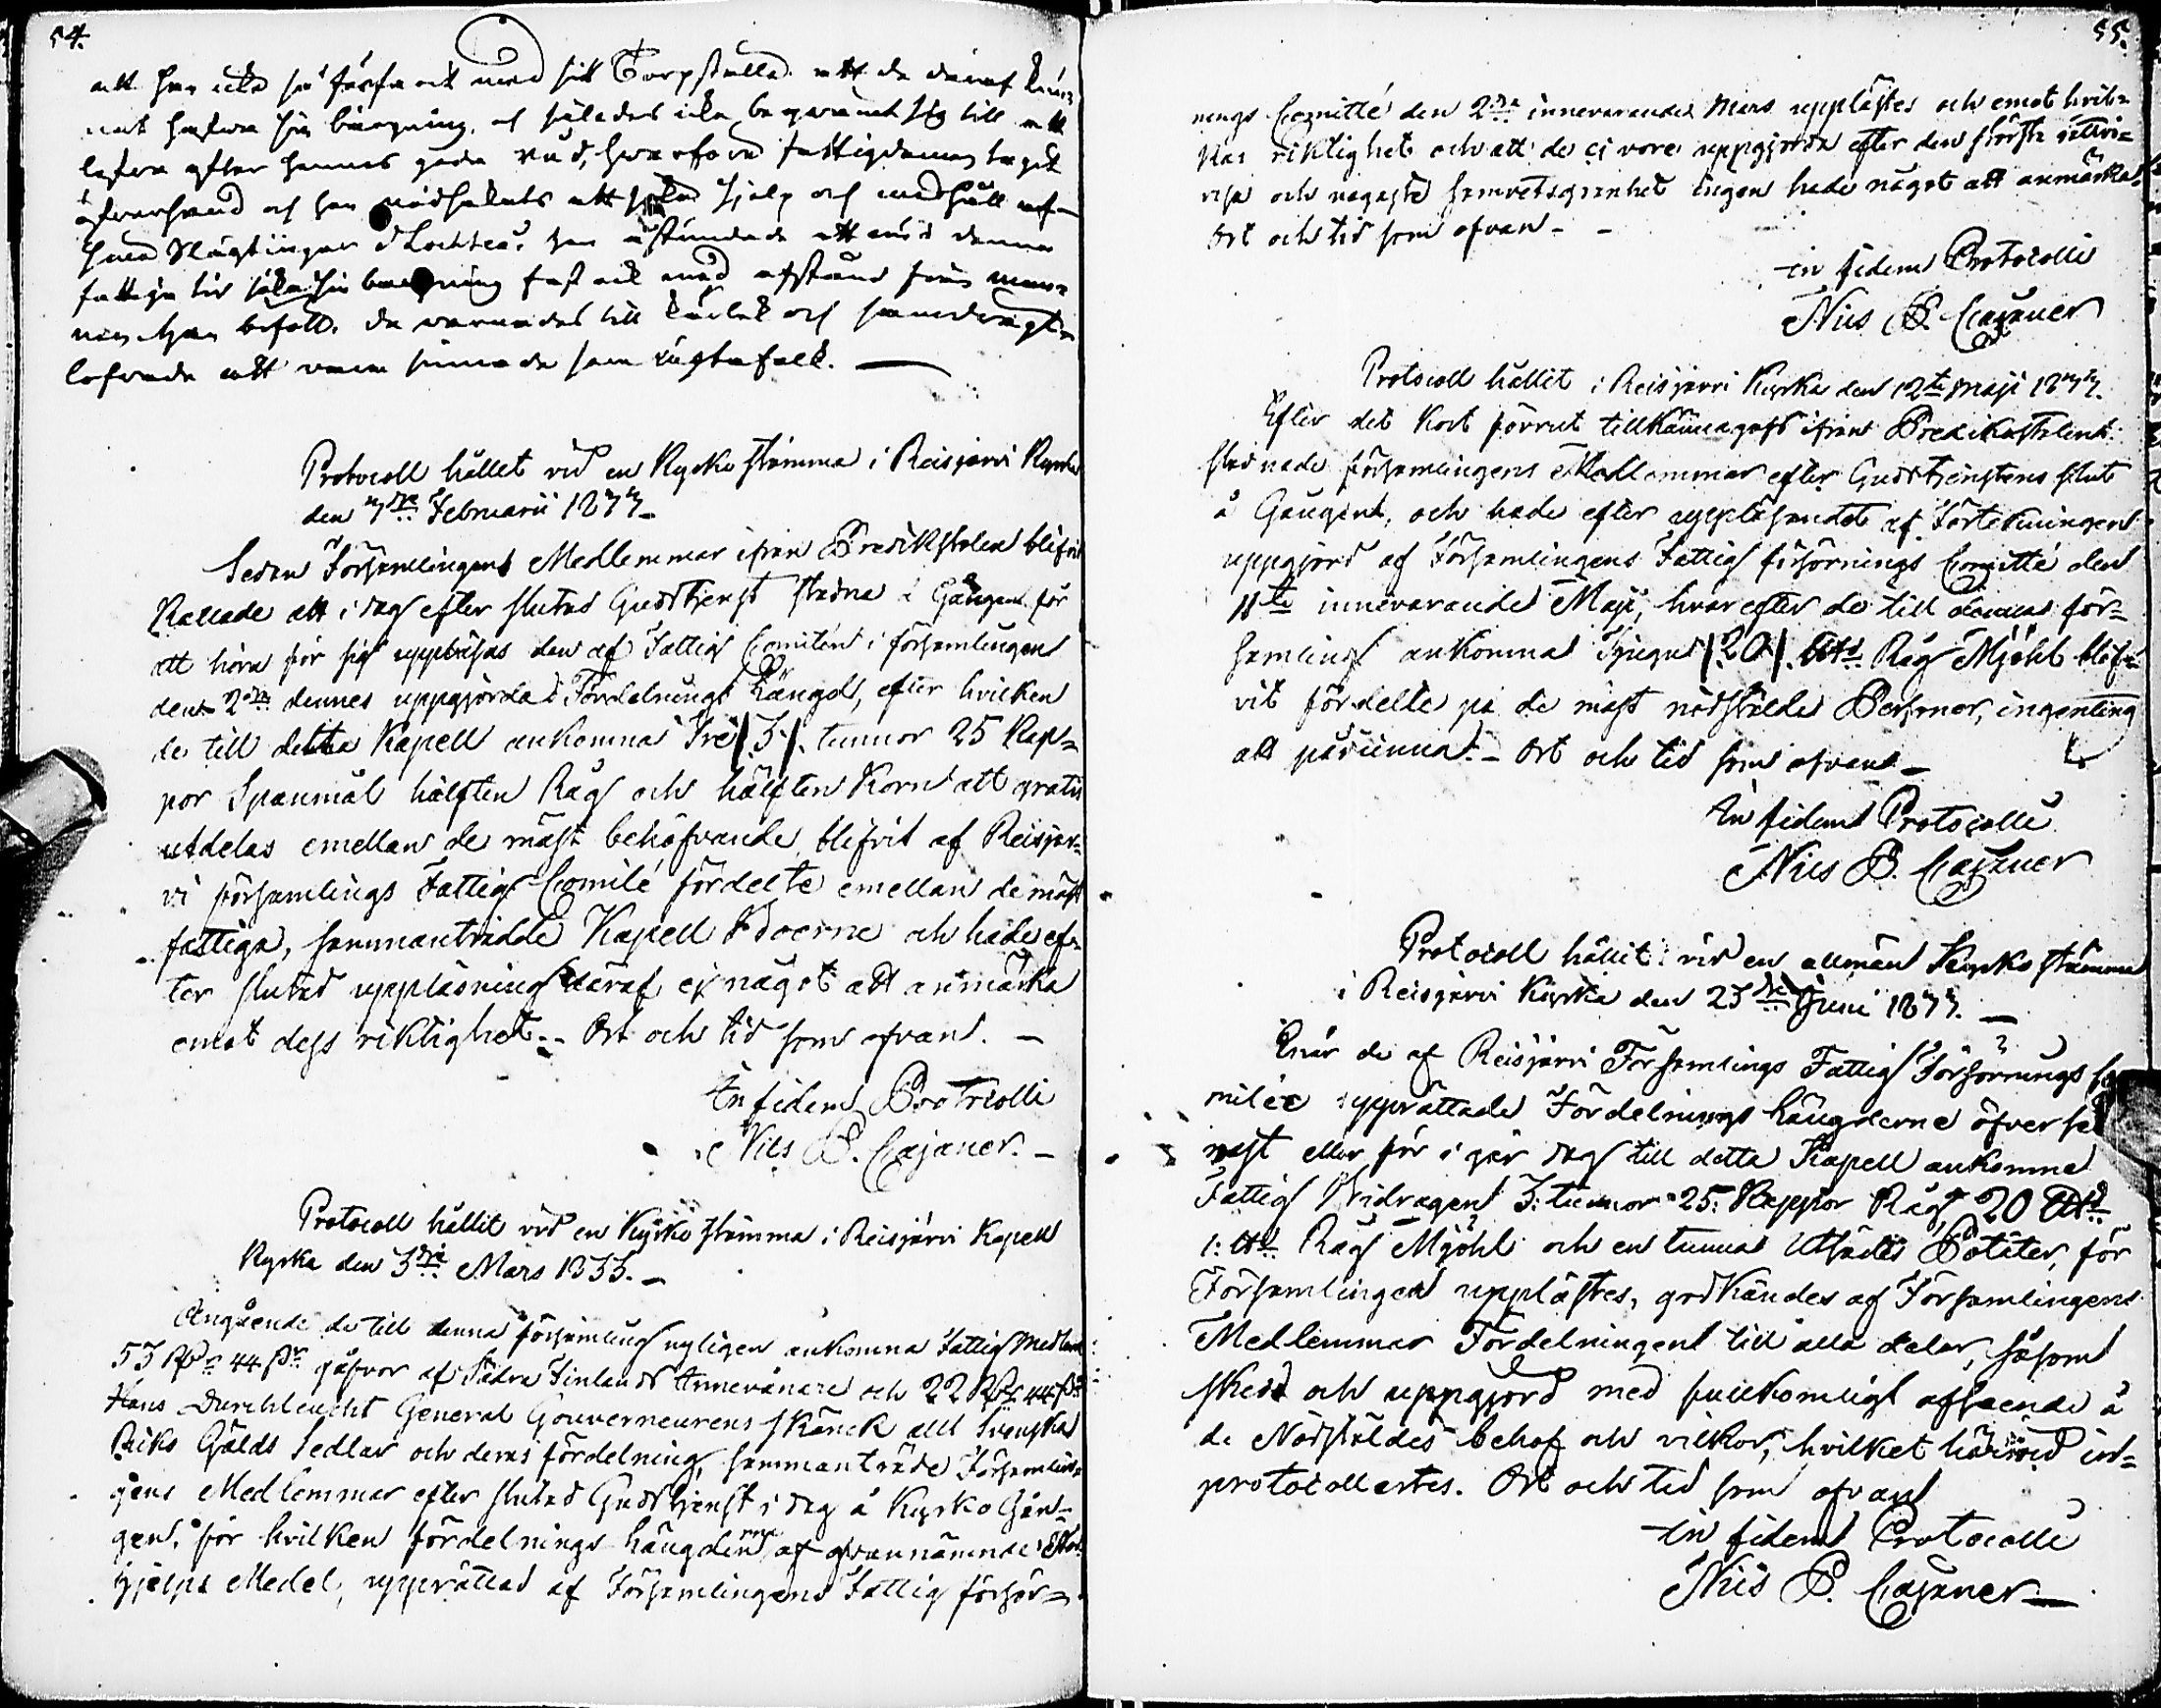 54.
att han icke så
hafva sin bärgning, och således icke beqvämat sig till att
lefva efter hennes goda råd, hvarföre fattigdomen tagit
öfverhand och han nödsakats att söka hjelp och
Slägtingar i Lochteå; han åstundade att
fattige tid söka sin bärgning
befalt. De varnades till kärlek och
lofvade att vara som ägtafolk. —
Protocoll hållet vid en Kyrko stämma i Reisjärvi Kyrka
den 7de Februarii 1833
Sedan Församlingens Medlemmar ifrån Predikstolen blifvit
Kallade att i dag efter slutad Gudstjenst stadna å Gången för
att höra för sig uppläsas den af Fattig Comitén i församlingen
den 2dra dennes uppgjorda Fördelnings Längd, efter hvilken
de till detta Kapell ankomna Tre /:3:/. tunnor 25 Kap=
por Spanmål hälften Råg och hälften Korn att gratis
utdelas emellan de mäst behöfvande, blifvit af Reisjer=
vi församlings Fattig Comité fördelte emellan de mäst
fattiga, sammanträdde Kapell Boerne och hade ef=
ter slutad uppläsning däraf ej något att anmärka
emot dess riktighet. - Ort och tid som ofvan. —
In fidem Protocolli
Nils B. Cajaner. —
Protocoll hållit vid en Kyrko stämma i Reisjärvi Kapell
Kyrka den 3dje Mars 1833. —
Angående de till denna församling nyligen ankomna Fattig Medlen
53 Rr 44 gåfvor af Södra Finlands Innevånare och 22 Rr 44
Hans Durchleucht General Gouverneurens skänck allt Svenska
Riks Gälds Sedlar och deras fördelning, sammanträdde Församlin=
gens Medlemmar efter slutad Gudstjenst i dag å Kyrko Gån=
gen, för hvilken fördelnings Längderne af ofvannämnde
hjelps Medel, upprättad af Församlingens Fattig försör=
55.
nings Comitté den 2dra innevarande Mars upplästes och emot hvil=
kas riktighet och att de ej vore uppgjorda efter den största rättvi=
visa och nogaste samvetsgranhet ingen hade något att anmärka.
Ort och tid som ofvan - -
In fidem Protocolli
Nils B. Cajaner
Protocoll hållit i Reisjärvi Kyrka den 12te Maji 1833.
Efter det kort förrut tillkännagifs ifrån Predikostolen
stadnade församlingens Medlemmar efter Gudstjenstens slut
å Gången, och hade efter uppläsandet af Förtekningen
uppgjord af Församlingens Fattig försörnings Comitté den
11te innevarande Maji, hvarefter de till denna för=
samling ankomna Tjugu /:20:/. Råg Mjöhl blif=
vit fördelte på de mäst nödstälda Personer, ingenting
att påminna. - Ort och tid som ofvan —
In fidem Protocolli
Nils B. Cajaner
Protocoll hållit vid en allmän Kyrko stämma
i Reisjärvi Kyrka den 23dje Juni 1833. —
Enär de af Reisjärvi Församlings Fattig Försörnings
mitée upprättade Fördelnings Längderne öfver
nast eller för i går dag till detta Kapell ankomne
Fattig Bidragen 3: tunnor 25: Kappor Råg, 20
1: Råg Mjöhl och en tunna Utsädes Potäter, för
Församlingen upplästes, godkändes af Församlingens
Medlemmar Fördelningen till alla delar, såsom
skedd och uppgjord med fullkomligt afseende å
de Nödstäldes behof och vilkor, hvilket härvid in=
protocollertes. Ort och tid som ofvan
In fidem Protocolli
Nils B. Cajaner —